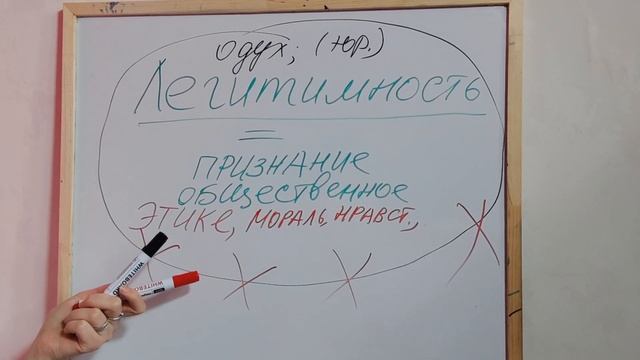 одух; (юр.)
Легитимность
=
ПРИЗНАНИЕ
ОБЩЕСТВЕННОЕ
ЭТИКЕ, МОРАЛЬ, НРАВСТ.,
WHITEBOARD
WHITEBO